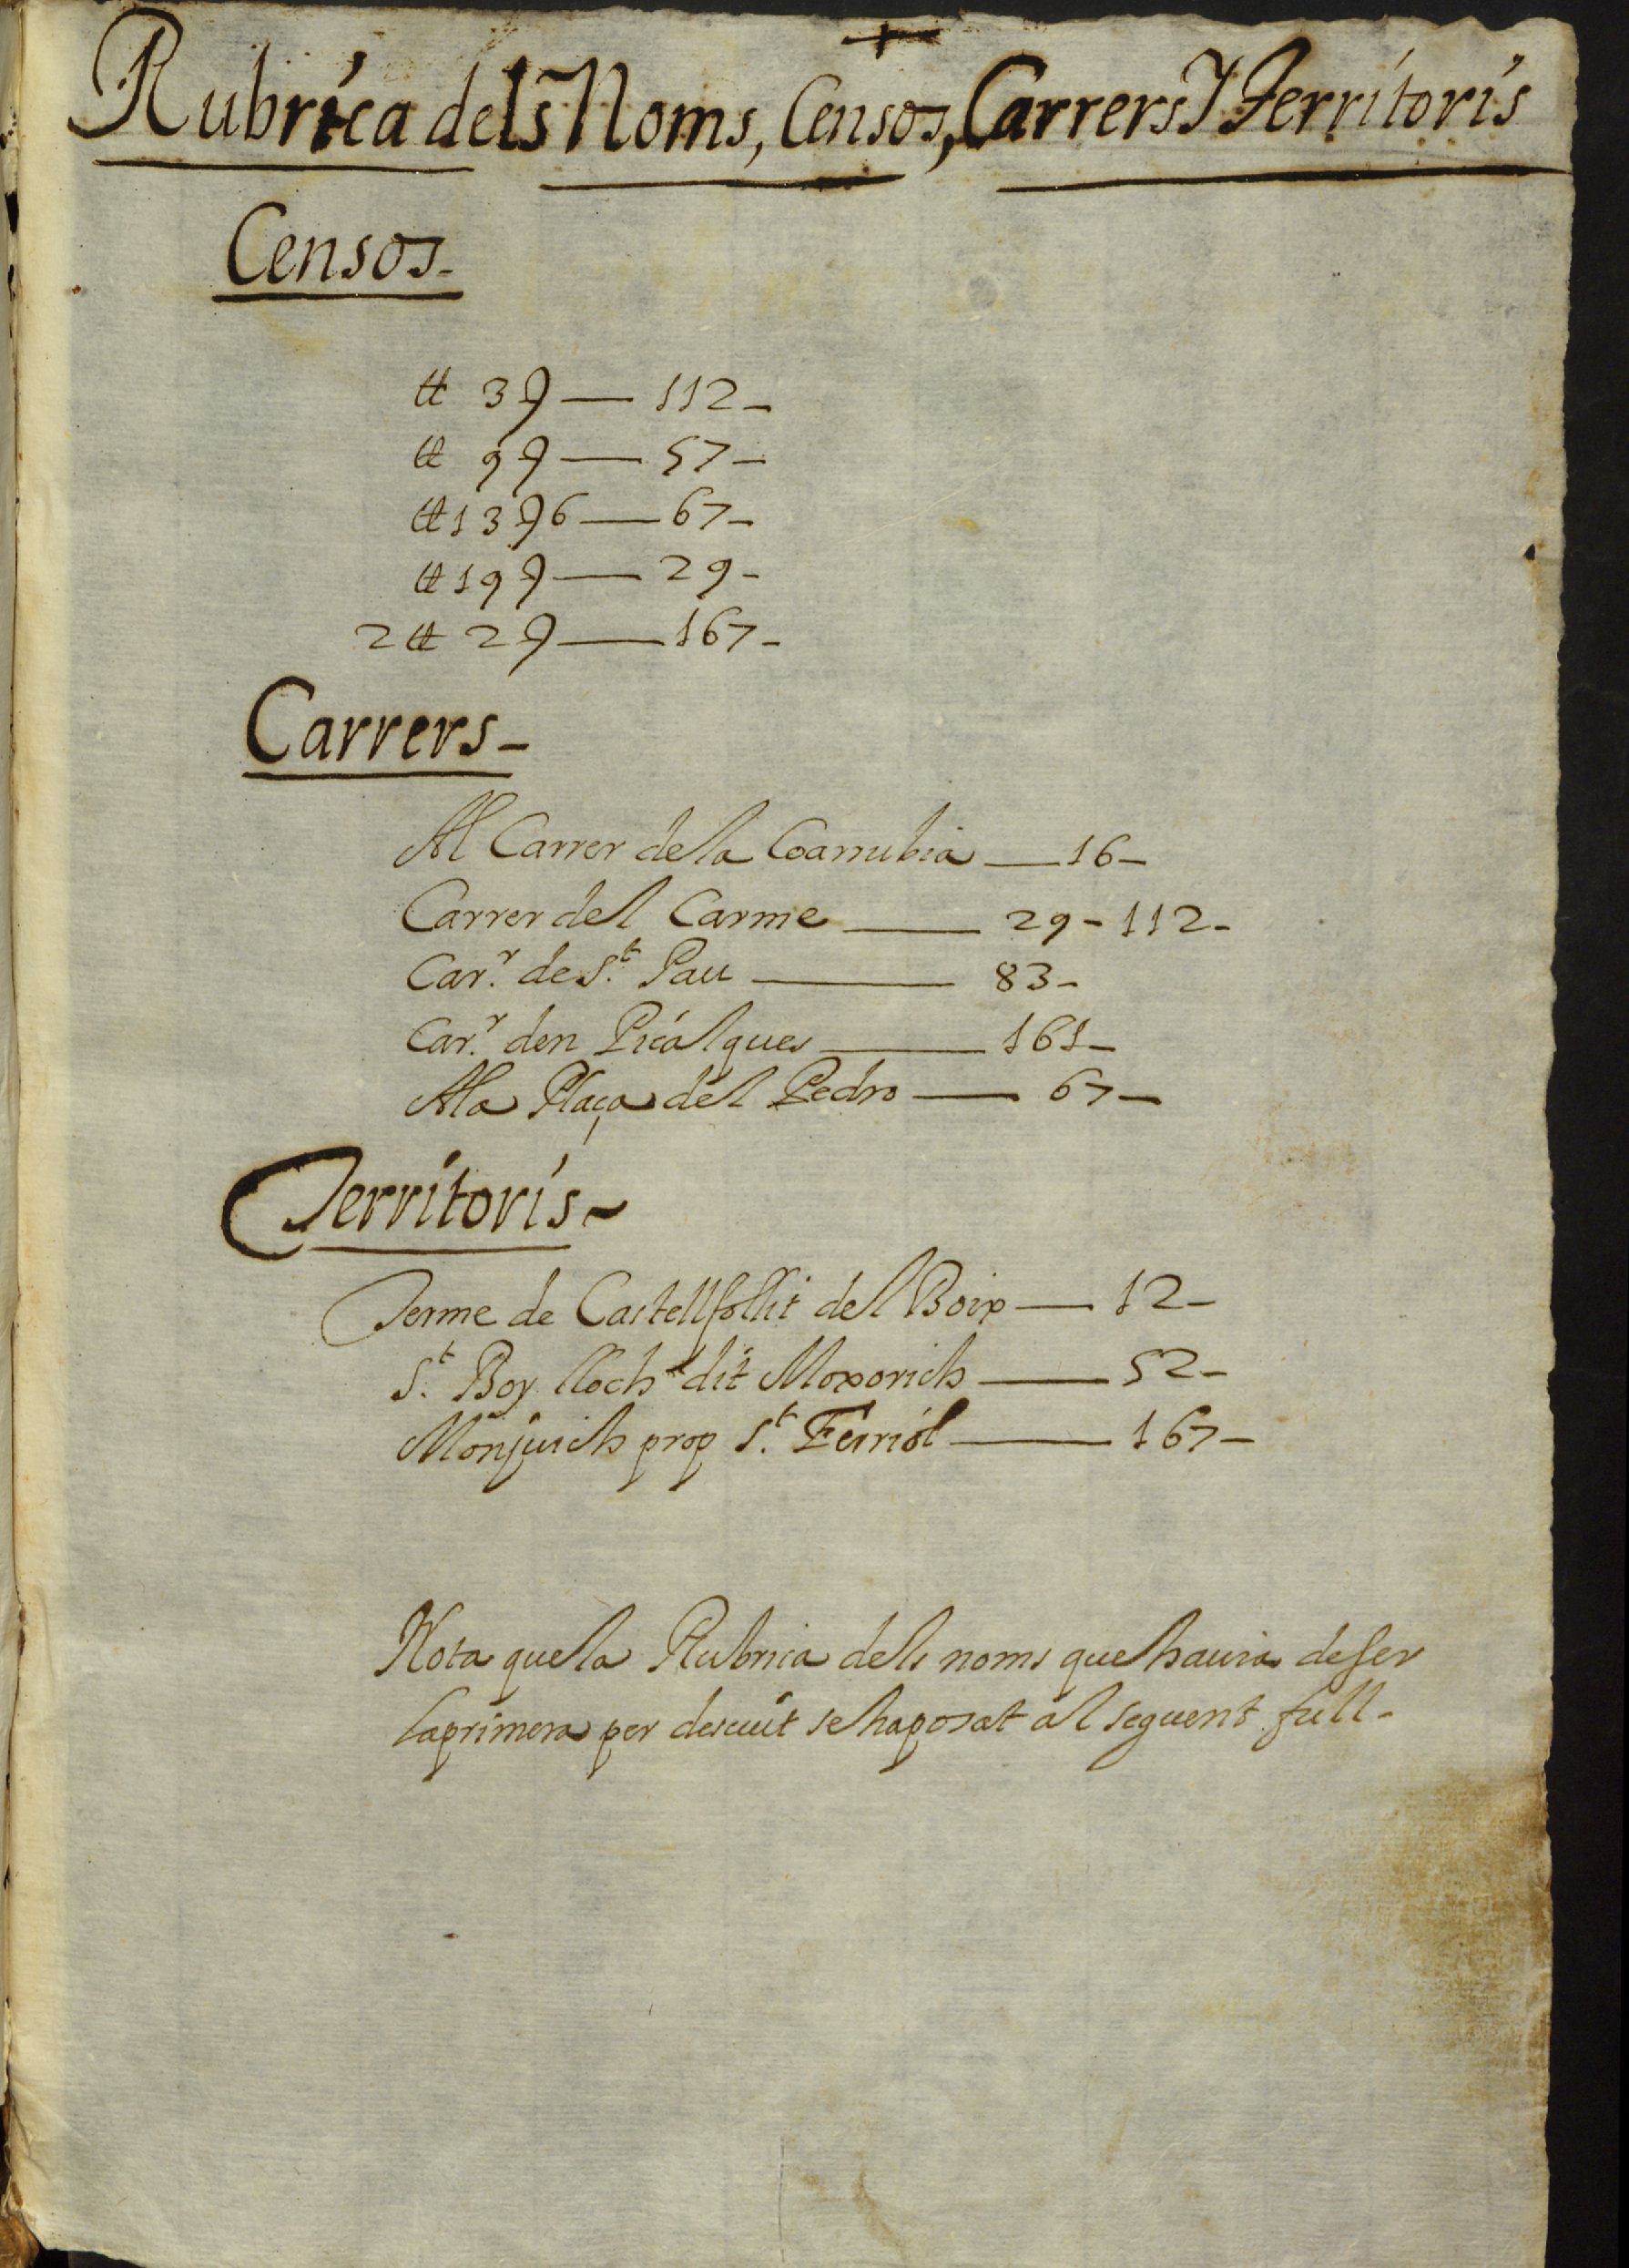 +
Rubrica dels Noms, Censos, Carrers Y Territoris
Censos-
₶ 3 ß — 112-
₶ 9 ß — 57-
₶ 13 ß 6 — 67-
₶ 19 ß — 29-
2 ₶ 2 ß — 167-
Carrers-
Al Carrer dela Coarrubia — 16-
Carrer del Carme — 29-112-
Car.r de St. Pau — 83-
Car.r den Picalques — 161-
Ala Plaça del Pedro — 67-
Territoris-
Terme de Castellfollit del Boix — 12-
St. Boy lloch dit Moxorich — 52-
Monjuich prop St. Ferriol — 167-
Nota quela Rubrica dels noms que hauia deser
laprimera per descuit se haposat al seguent full-